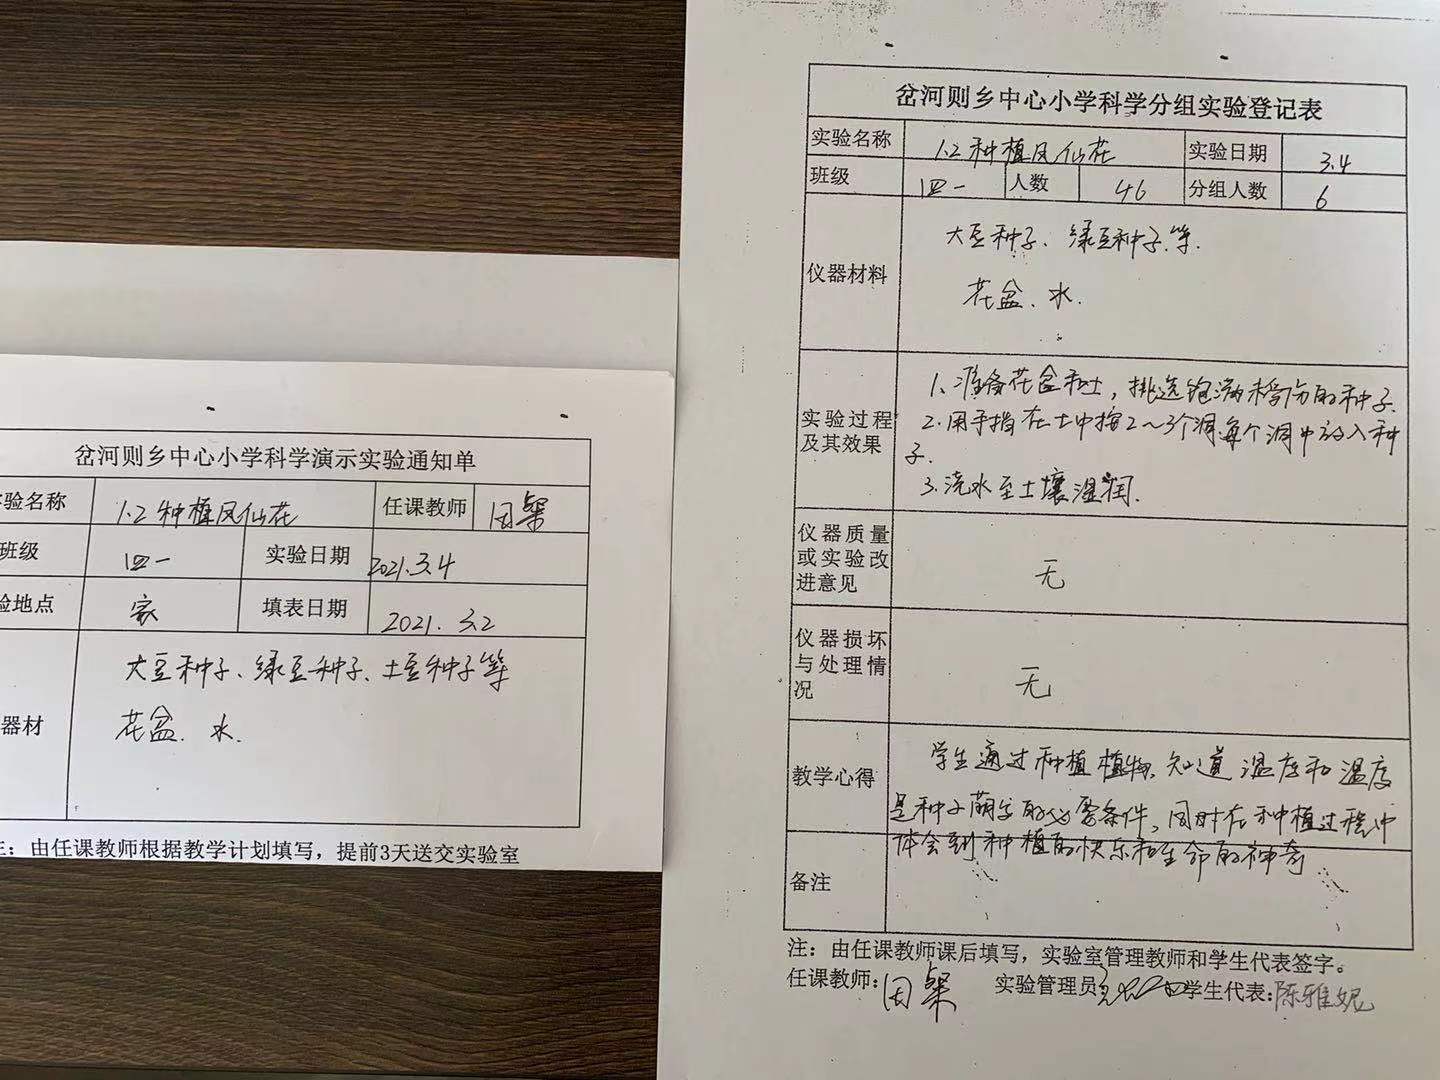 岔河则乡中心小学科学演示实验通知单
验名称 1.2 种植凤仙花 任课教师 田粲
班级 四一 实验日期 2021.3.4
验地点 家 填表日期 2021.3.2
器材 大豆种子、绿豆种子、土豆种子等
花盆、水.
注：由任课教师根据教学计划填写，提前3天送交实验室
岔河则乡中心小学科学分组实验登记表
实验名称 1.2 种植凤仙花 实验日期 3.4
班级 四一 人数 46 分组人数 6
仪器材料 大豆种子、绿豆种子.等.
花盆.水.
实验过程及其效果 1、准备花盆和土，挑选饱满
的种子.
2.用手指在土中按2～3个洞.每个洞中放入种
子.
3.浇水至土壤湿润.
仪器质量
或实验改
进意见 无
仪器损坏
与处理情
况 无
教学心得 学生通过种植植物,知道温度和湿度
是种子萌发的必要条件,同时在种植过程中
体会到种植的快乐和生命的神奇
备注
注：由任课教师课后填写，实验室管理教师和学生代表签字。
任课教师：田粲 实验管理员 学生代表：陈雅妮